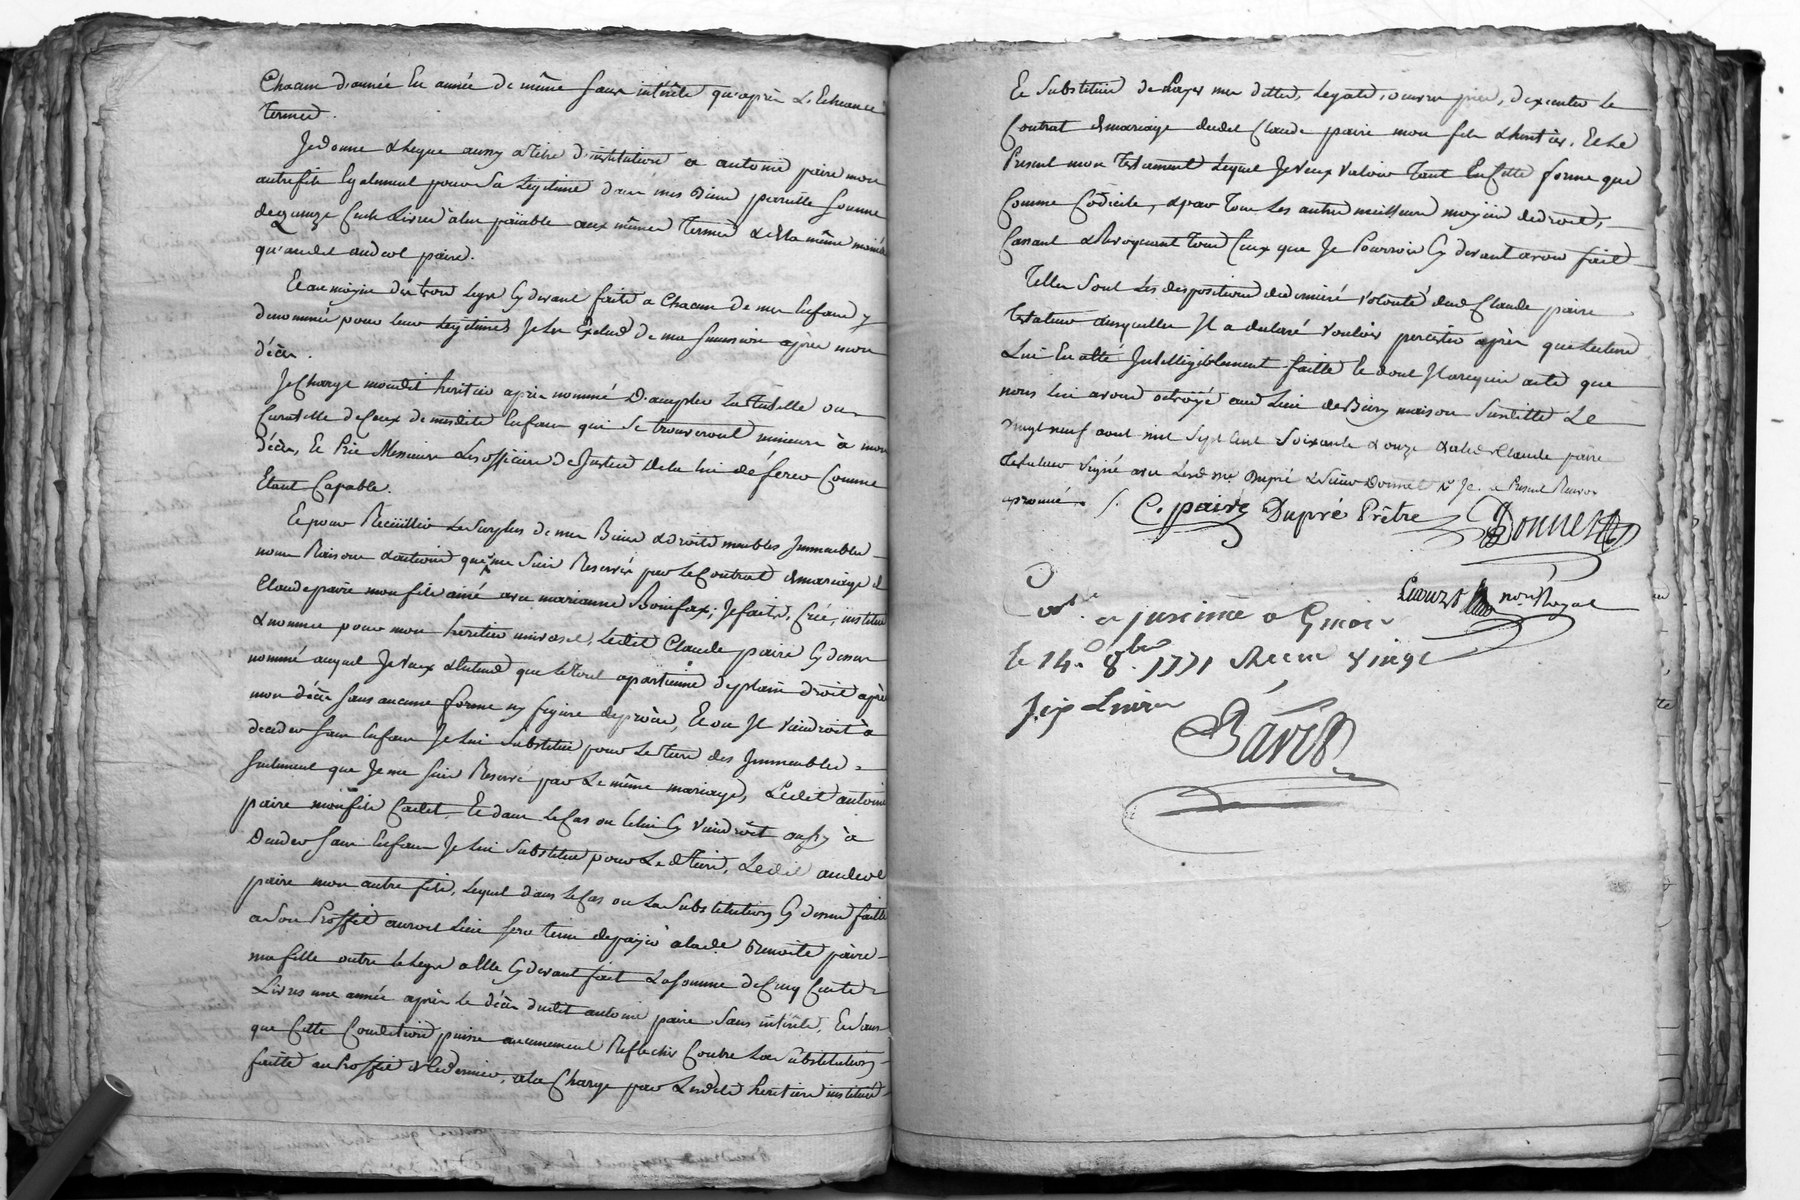 Chacun d'année En année de même sans intérêts qu'après L'Echeance
Termes.
Je donne & legue aussy a Titre d'institution a antoine paire mon
autre fils Egalement pour Sa Légitime dans mes Biens pareille Somme
de quinze Cents Livres à luy païable aux mêmes Termes & de la même manière
qu'audit andeol paire.
Et au moyen des trois Legs Cy devant faits a Chacun de mes Enfans y
denommés pour leurs Légitimes Je les Exclus de ma Succession apres mon
décès.
Je Charge mondit heritier après nommé D'accepter La Tutelle ou
Curatelle de Ceux de mesdits Enfans qui Se trouveront mineurs à mon
décès, Et Prie Messieurs Les officiers de Justice De la lui déferer Comme
Etant Capable.
Et pour Recüeillir Le Surplus de mes Biens & droits meubles Immeubles
noms Raisons & actions que me Suis Reservés par le Contrat de mariage de
Claude paire mon fils ainé avec marianne Bonifax; Je fais, Crée, institue
& nomme pour mon heritier universel, Ledit Claude paire Cy dessus
nommé auquel Je veux & Entend que le tout apartienne de plain droit après
mon décès sans aucune forme ny figure de procès, Et ou Il viendroit à
deceder Sans Enfans Je lui Substitue pour Le Tiers des Immeubles
Seulement que Je me Suis Reservé par Le même mariage, Ledit antoine
paire mon fils Cadet, Et dans le Cas ou Celui Cy viendroit aussy à
Deceder Sans Enfans Je lui Substitue pour Le d. Tiers, Ledit andeol
paire mon autre fils, Lequel dans le Cas ou La Substitution Cy dessus faitte
a Son Proffit auroit Lieu Sera tenu de païer a lade. Benoite paire
ma fille outre le Legs a Elle Cy devant fait La Somme de Cinq Cents
Livres une année après le décès dudit antoine paire Sans intérêts, Et Sans
que Cette Condition puisse aucunement Reflechir Contre La Substitution
faitte au Proffit de Ce dernier, a la Charge par Lesdits heritiers institué
Et Substitués de Payer mes dettes, Legats, œuvres pies, d'executer Le
Contrat de mariage dudit Claude paire mon fils & heritier, Et Le
Present mon Testament Lequel Je veux Valoir Tant En Cette forme que
Comme Codicile, & par Tous Les autres meilleurs moyens de droit,
Cassant & Revoquant Tous Ceux que Je Pourrois Cy devant avoir fait
Telles Sont Les dispositions de derniere volonté dud. Claude paire
Testateur ausquelles Il a declaré vouloir percister après que Lecture
Lui En a été Intelligiblement faitte & dont Il a requis acte que
nous lui avons octroyé aud. Lieu de Bussy maison Susditte Le
vingt neuf aout mil Sept Cent Soixante & onze & a led. Claude paire
Testateur Signé avec Led. mre Dupré & Sieur Donnet
C. paire Dupré Prêtre Donnet
nore. Royal
Conle. et insinüé a
le 14. 8bre. 1771 Recu vingt
six Livres